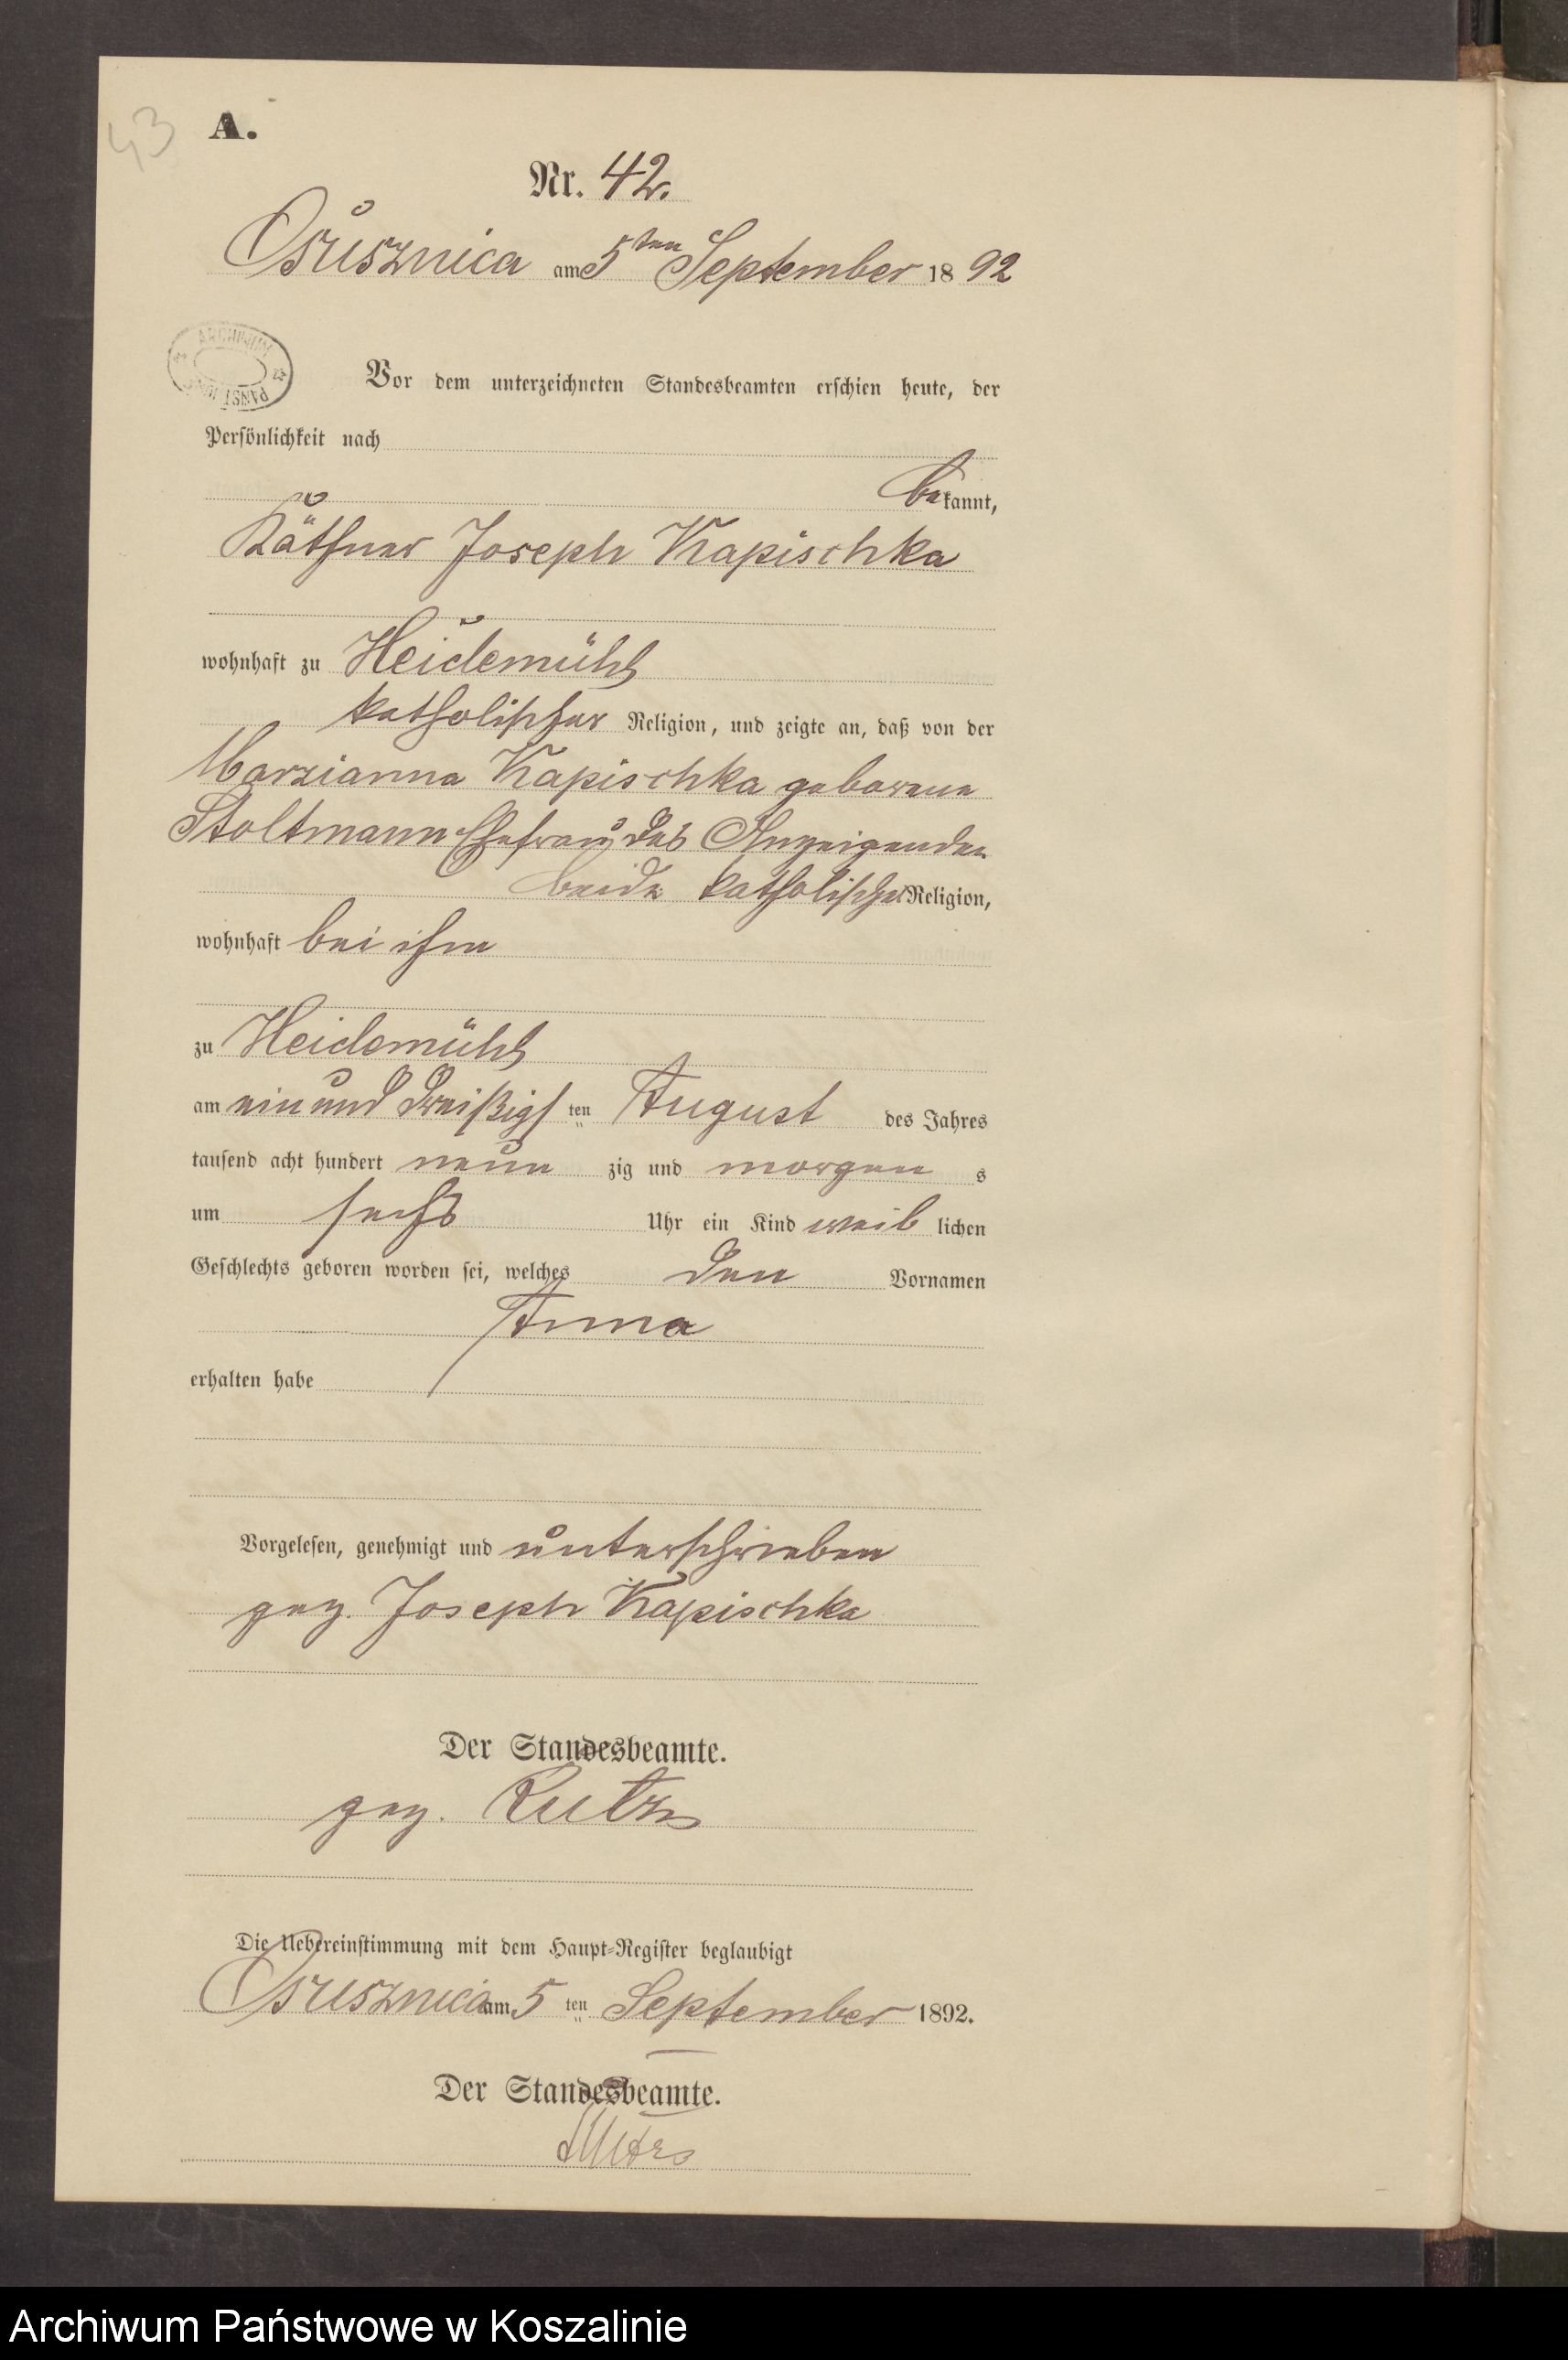 43
A.
Nr. 42.
Osusznica am 5ten September 1892
ARCHIWUM
Vor dem unterzeichneten Standesbeamten erschien heute, der
Persönlichkeit nach
bekannt,
Käthner Joseph Kapischka
wohnhaft zu Heidemühl
katholischer Religion, und zeigte an, daß von der
Marzianna Kapischka geborene
Stoltmann Ehefrau des Anzeigenden
beide katholischer Religion,
wohnhaft bei ihm
zu Heidemühl
am ein und dreißigsten August des Jahres
tausend acht hundert neun zig und morgen s
um sechs Uhr ein Kind weib lichen
Geschlechts geboren worden sei, welches den Vornamen
Anna
erhalten habe
Vorgelesen, genehmigt und unterschrieben
gez. Joseph Kapischka
Der Standesbeamte.
gez.
Die Uebereinstimmung mit dem Haupt-Register beglaubigt
Osusznica am 5ten September 1892.
Der Standesbeamte.
Archiwum Państwowe w Koszalinie